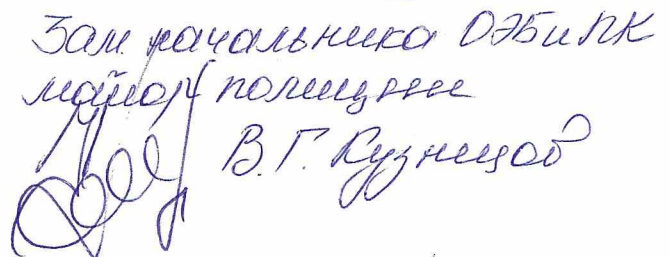 Зам. начальника ОЭБиПК
майор полиции
В.Г. Кузнецов